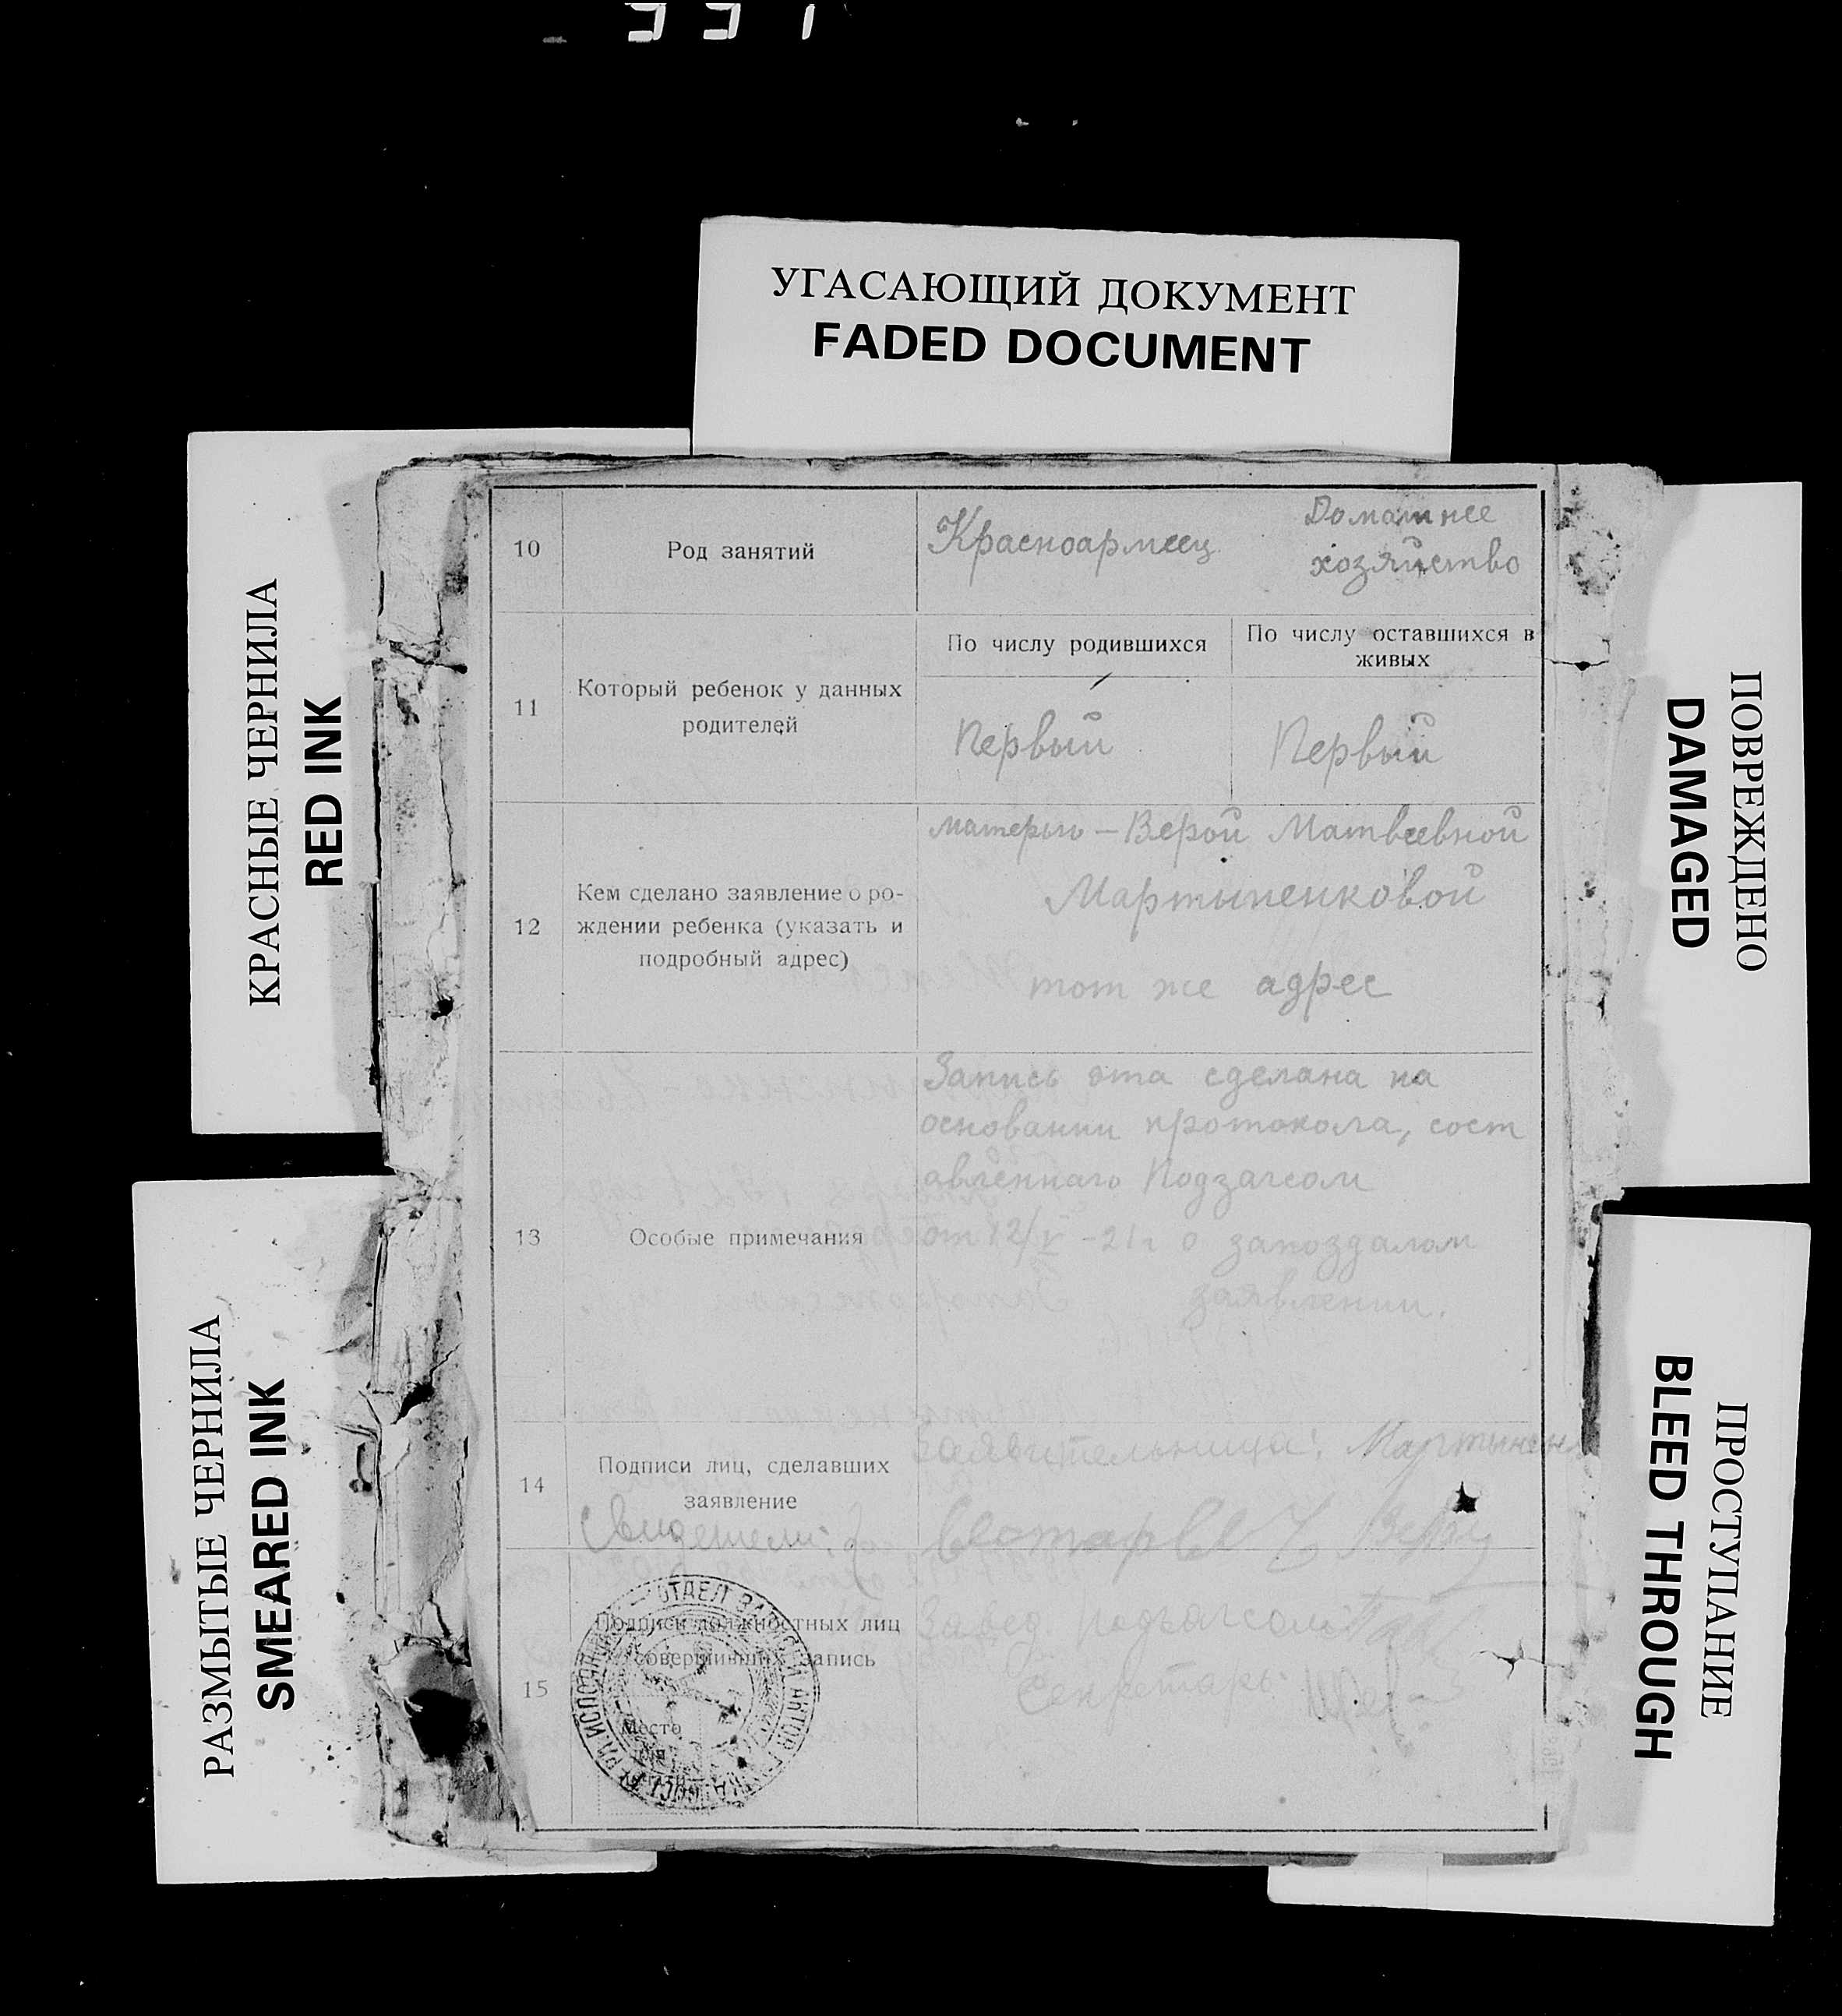 УГАСАЮЩИЙ ДОКУМЕНТ
FADED DOCUMENT
КРАСНЫЕ ЧЕРНИЛА
RED INK
РАЗМЫТЫЕ ЧЕРНИЛА
SMEARED INK
10
Род занятий
Красноармеец
Домашнее
хозяйство
11
Который ребенок у данных
родителей
По числу родившихся
Первый
По числу оставшихся в
живых
Первый
12
Кем сделано заявление о ро-
ждении ребенка (указать и
подробный адрес)
матерью – Верой Матвеевной
Мартыненковой
тот же адрес
13
Особые примечания
Запись эта сделана на
основании протокола, сост
авленнаго Подзагсом
от 12/V -21 г о запоздалом
заявлении.
14
Подписи лиц, сделавших
заявление
Заявительница: Мартынен
Свидетели:
15
Подписи должностных лиц
совершивших запись
Место
Завед Подзагсом
Секретарь
ОТДЕЛ
ПОВРЕЖДЕНО
DAMAGED
ПРОСТУПАНИЕ
BLEED THROUGH